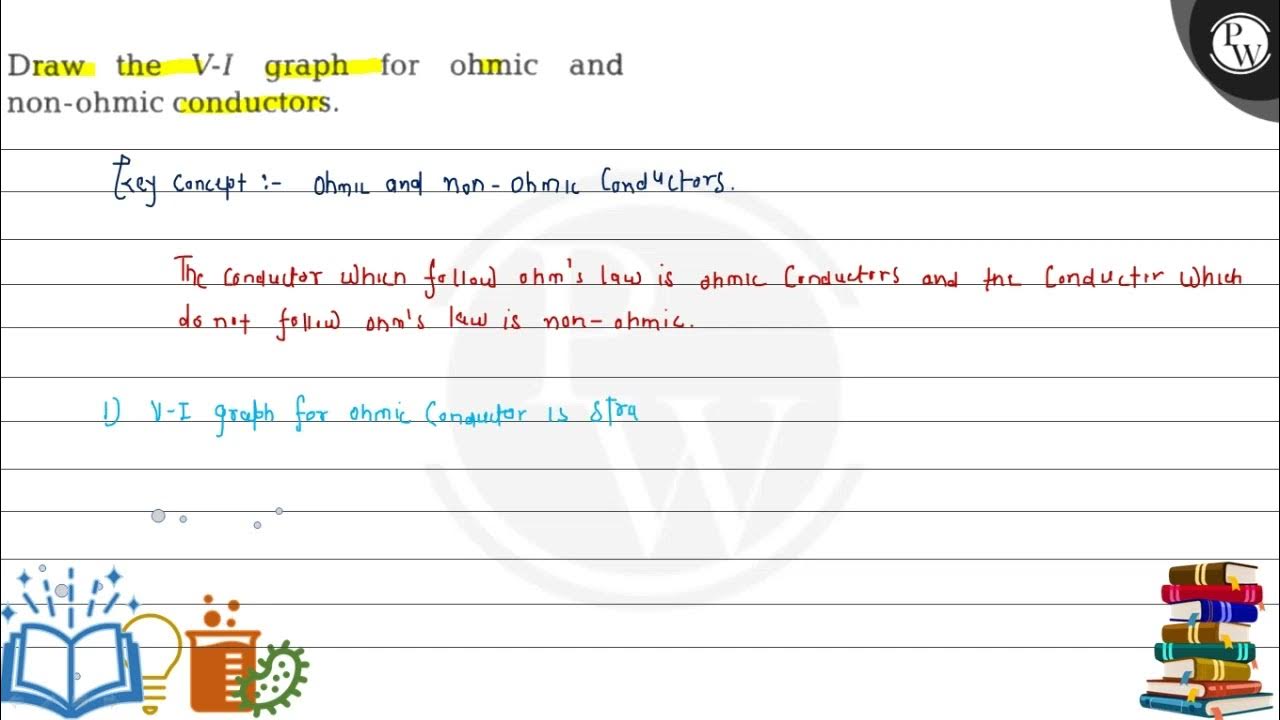 Draw the V-I graph for ohmic and
non-ohmic conductors.
PW
Key concept :- Ohmic and non-ohmic Conductors.
The conductor which follow ohm's law is ohmic Conductors and the Conductor which
do not follow ohm's law is non-ohmic.
1) V-I graph for ohmic Conductor is stra
PW